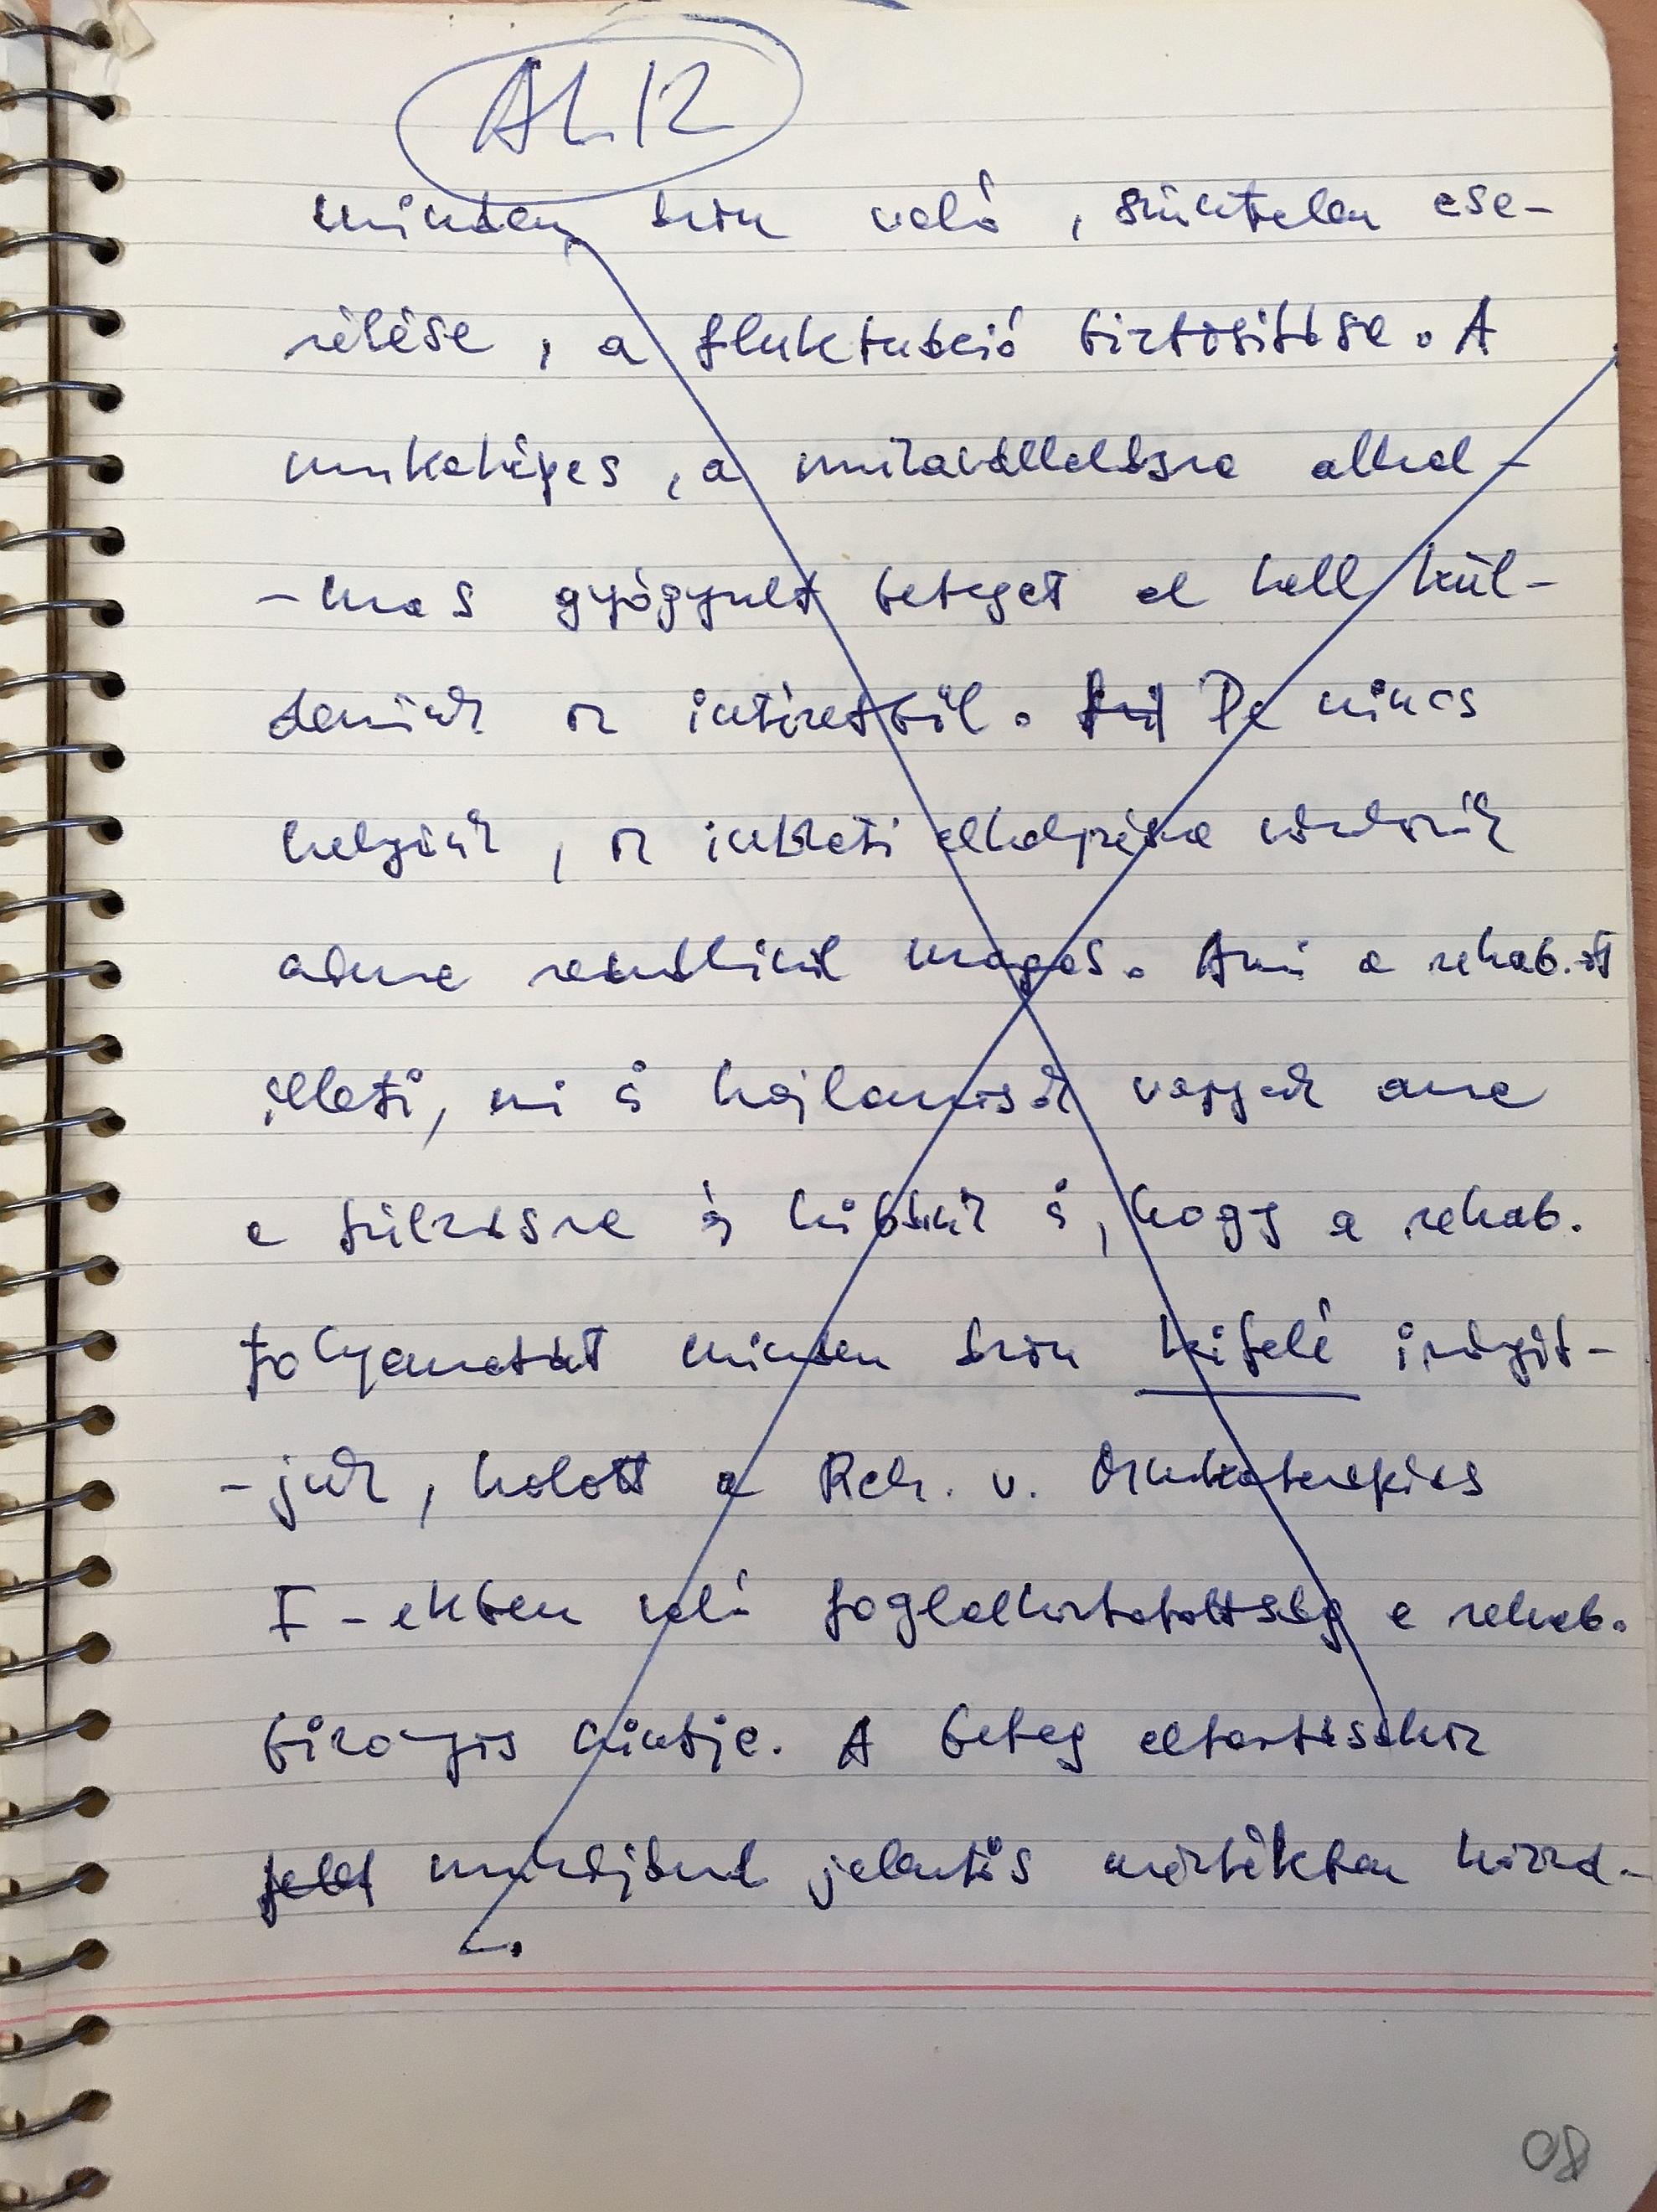 AL 12
minden áron való, szüntelen cse-
rélése, a fluktuáció biztosítása. A
munkaképes, a munkavállalásra alkal-
-mas gyógyult beteget el kell kül-
denünk az intézetből. De nincs
helyünk, az intézeti elhelyezésre várók
száma rendkívül magas. Ami a rehab.-ót
illeti, mi is hajlamosak vagyunk arra
a túlzásra és hibánk is, hogy a rehab.
folyamatát minden áron kifelé irányít-
-juk, holott a Reh. v. Munkaterápiás
I-ekben való foglalkoztatottság a rehab.
bizonyos szintje. A beteg eltartásához
munkájával jelentős mértékben hozzá-
08